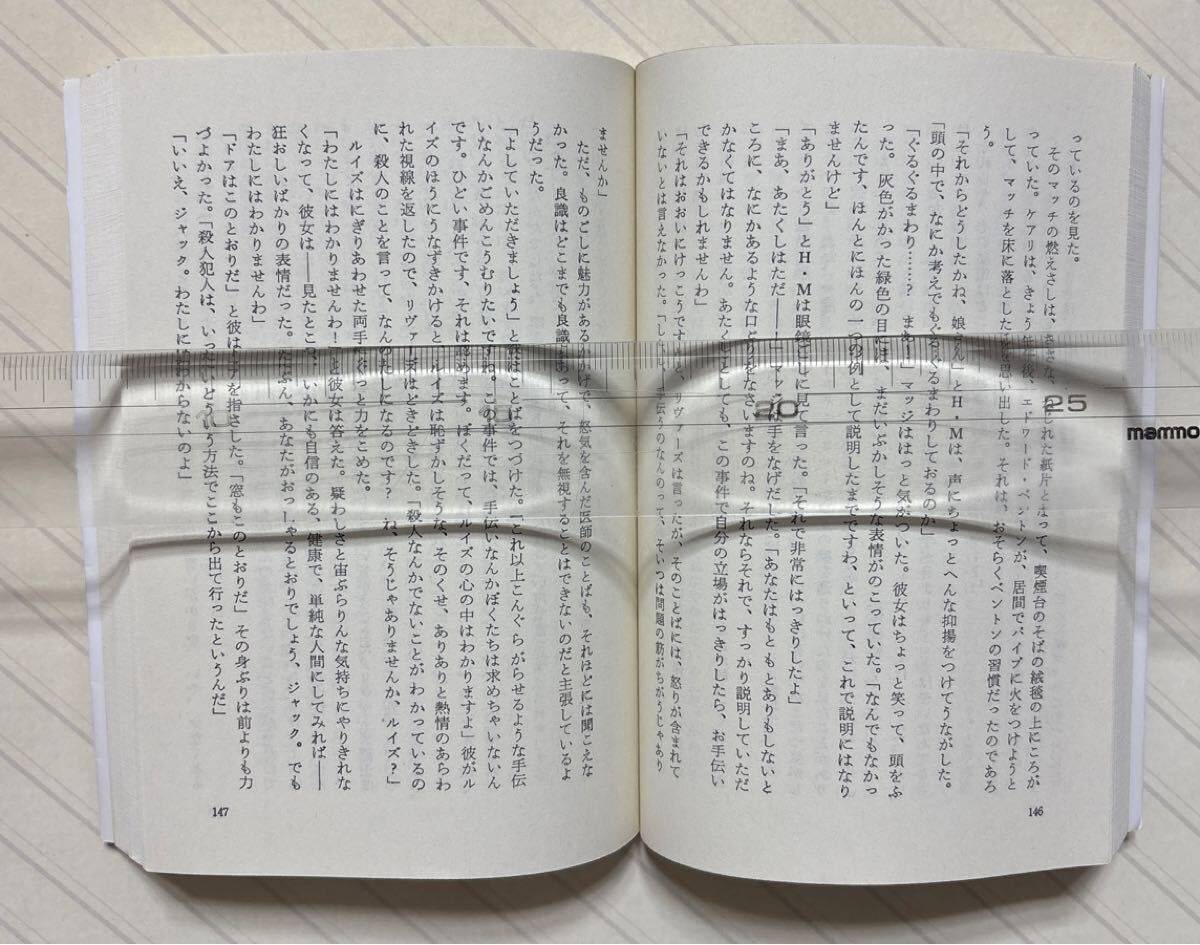 っているのを見た。
そのマッチの燃えさしは、きさな、じれた紙片となって、喫煙台のそばの絨毯の上にころが
っていた。ケアリは、きょう午後、エドワード・ベントンが、居間でパイプに火をつけようと
して、マッチを床に落としたのを思い出した。それは、おそらくベントンの習慣だったのであろ
う。
「それからどうしたかね、娘さん」とH・Mは、声にちょっとへんな抑揚をつけてうながした。
「頭の中で、なにか考えでもぐるぐるまわりしておるのか」
「ぐるぐるまわり……？　まあ！」マッジははっと気がついた。彼女はちょっと笑って、頭をふ
った。灰色がかった緑色の目には、まだいぶかしそうな表情がのこっていた。「なんでもなかっ
たんです、ほんとにほんの一つの例として説明したまでですわ、といって、これで説明にはなり
ませんけど」
「ありがとう」とH・Mは眼鏡ごしに見て言った。「それで非常にはっきりしたよ」
「まあ、あたくしはただ――！」マッジは手をなげだした。「あなたはもともとありもしないと
ころに、なにかあるような口ぶりをなさいますのね。それならそれで、すっかり説明していただ
かなくてはなりません。あたくしとしても、この事件で自分の立場がはっきりしたら、お手伝い
できるかもしれませんわ」
「それはおおいにけっこうです」と、リヴァーズは言ったが、そのことばには、怒りが含まれて
いないとは言えなかった。「しかし、手伝うのなんのって、そいつは問題の筋がちがうじゃあり
146
ませんか」
ただ、ものごしに魅力があるおかげで、怒気を含んだ医師のことばも、それほどには聞こえな
かった。良識はどこまでも良識であって、それを無視することはできないのだと主張しているよ
うだった。
「よしていただきましょう」と彼はことばをつづけた。「これ以上こんぐらがらせるような手伝
いなんかごめんこうむりたいですね。この事件では、手伝いなんかぼくたちは求めちゃいないん
です。ひどい事件です、それは認めます。ぼくだって、ルイズの心の中はわかりますよ」彼がル
イズのほうにうなずきかけると、ルイズは恥ずかしそうな、そのくせ、ありありと熱情のあらわ
れた視線を返したので、リヴァーズはどきどきした。「殺人なんかでないことがわかっているの
に、殺人のことを言って、なんのたしになるのです？　ね、そうじゃありませんか、ルイズ？」
ルイズはにぎりあわせた両手にぐっと力をこめた。
「わたしにはわかりませんわ！」と彼女は答えた。疑わしさと宙ぶらりんな気持ちにやりきれな
くなって、彼女は――見たところ、いかにも自信のある、健康で、単純な人間にしてみれば――
狂おしいばかりの表情だった。「たぶん、あなたがおっしゃるとおりでしょう、ジャック。でも
わたしにはわかりませんわ」
「ドアはこのとおりだ」と彼はドアを指さした。「窓もこのとおりだ」その身ぶりは前よりも力
づよかった。「殺人犯人は、いったいどういう方法でここから出て行ったというんだ」
「いいえ、ジャック。わたしにはわからないのよ」
147
20
25
mammo